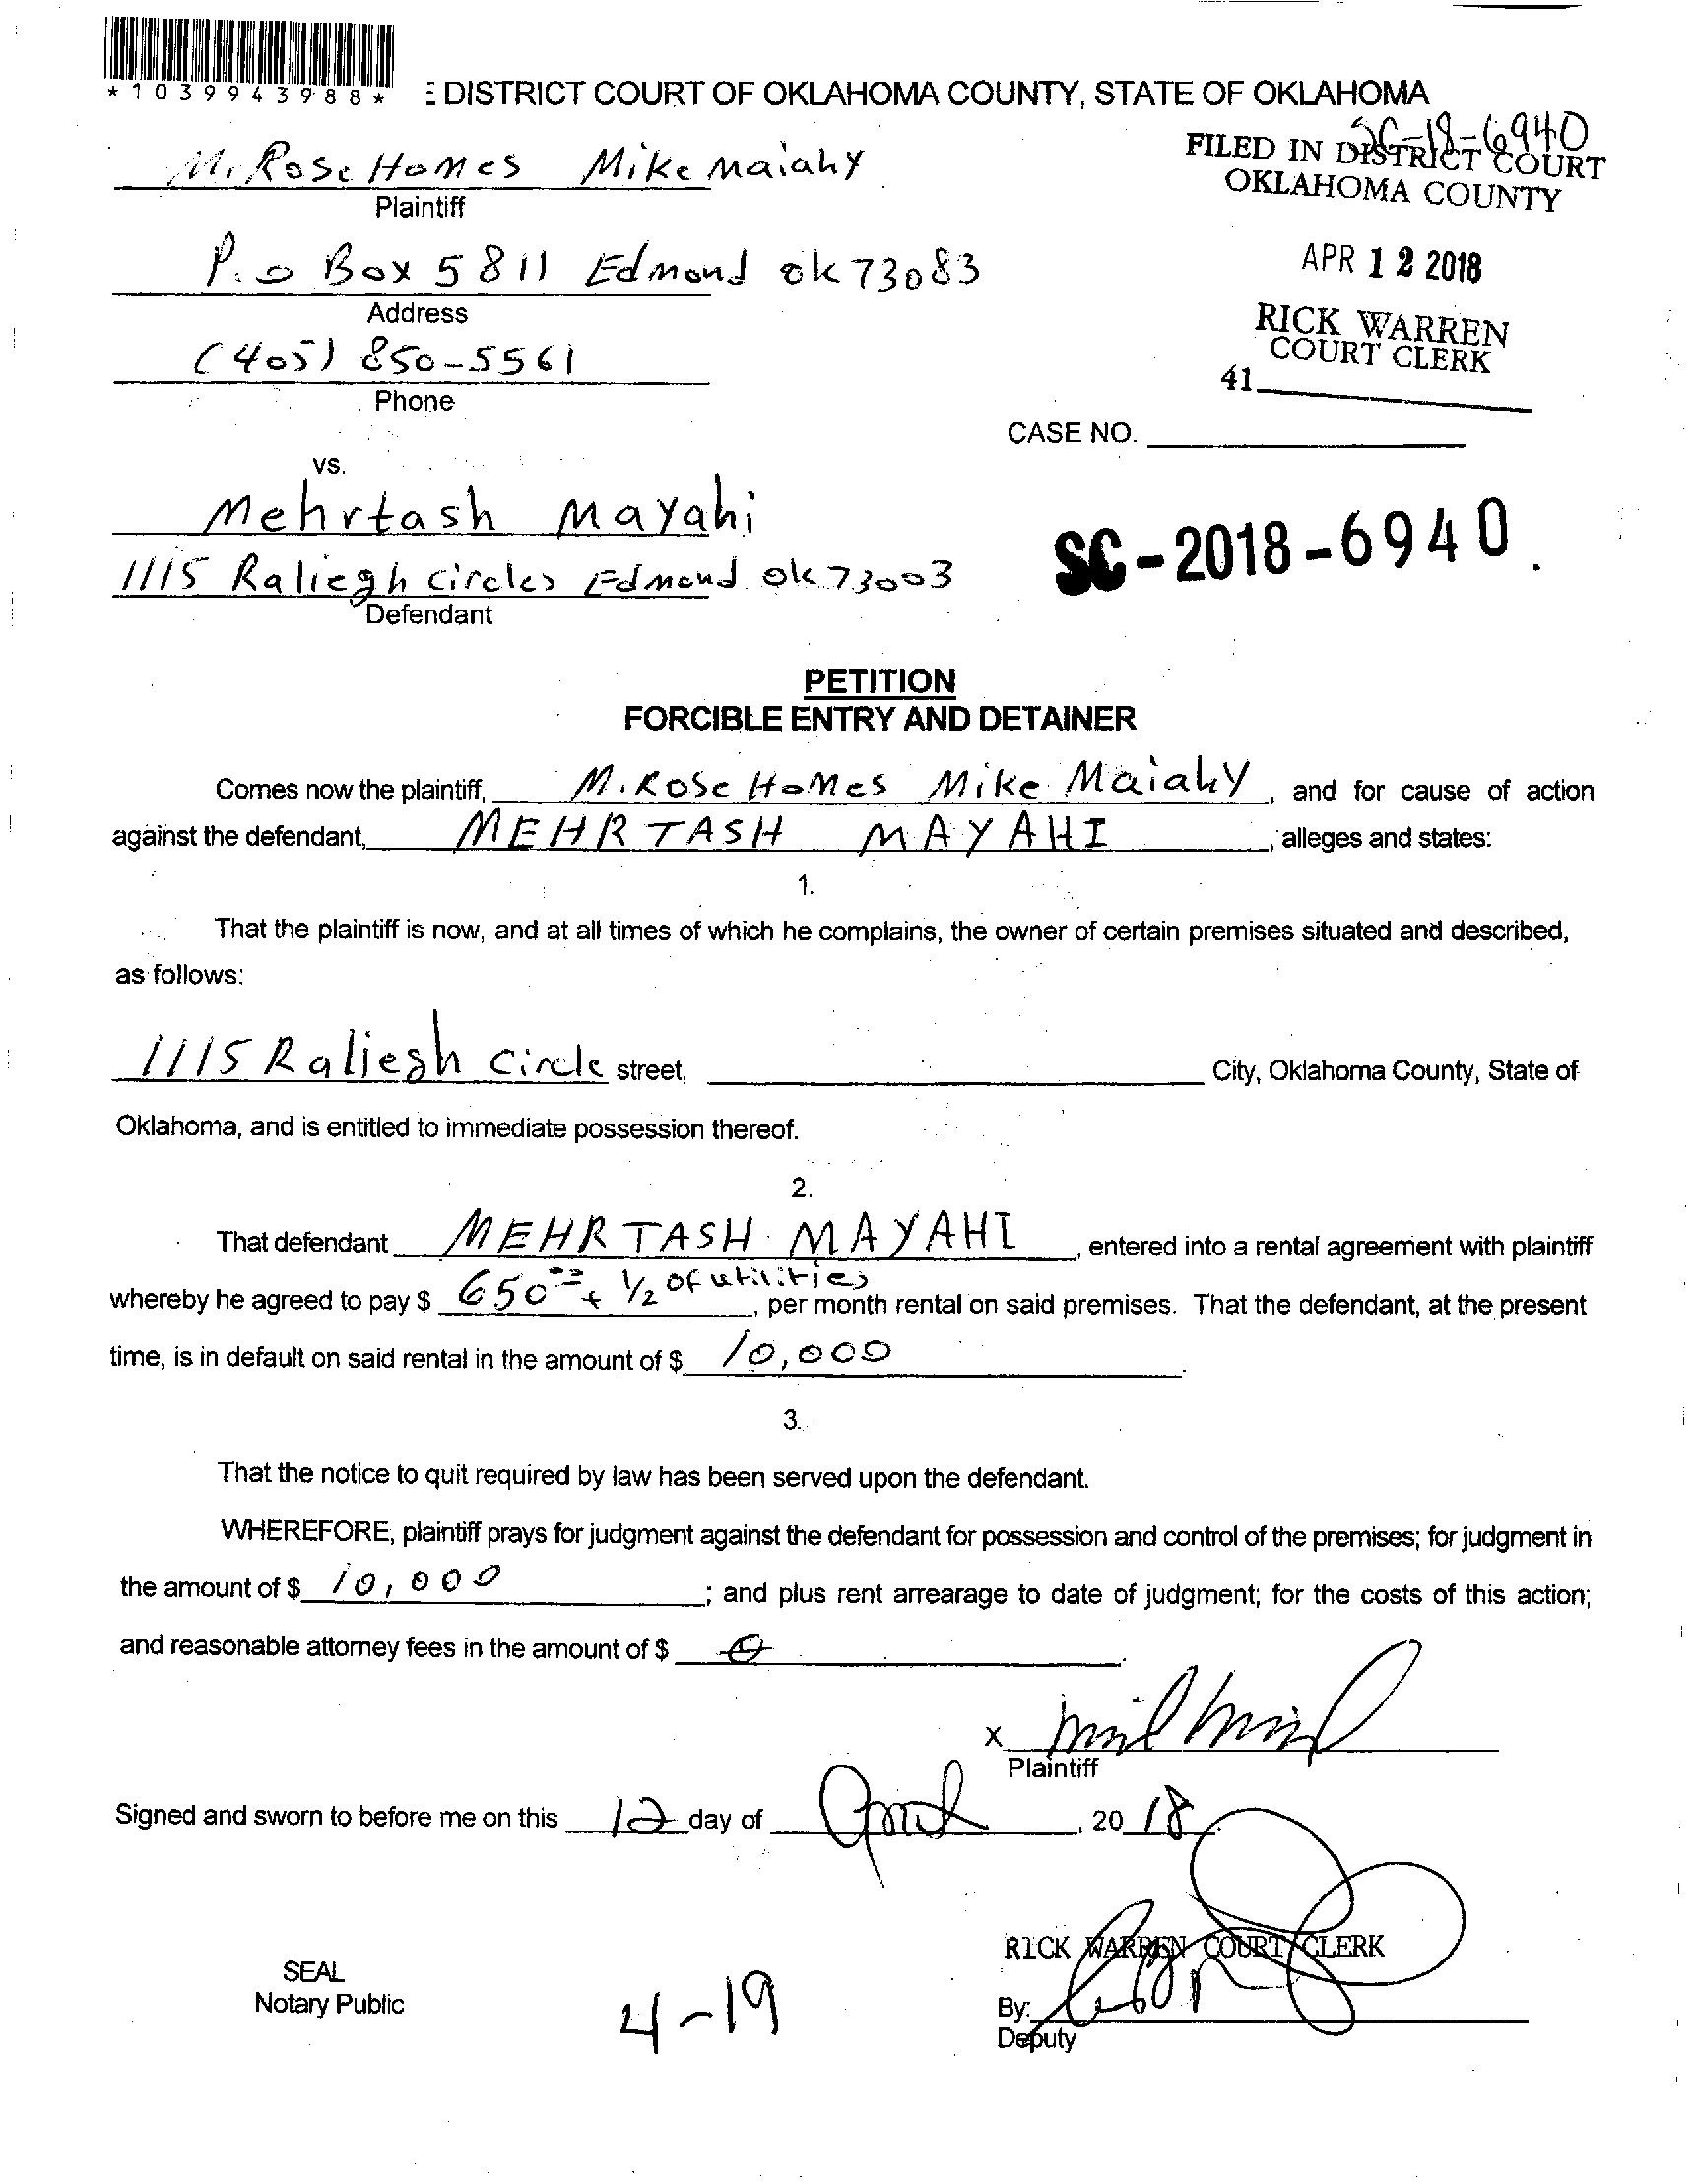 *1039943988*
DISTRICT COURT OF OKLAHOMA COUNTY, STATE OF OKLAHOMA
SC-18-6940
FILED IN DISTRICT COURT
OKLAHOMA COUNTY
M. Rose Homes Mike Maiahy
Plaintiff
P.o Box 5811 Edmond ok 73083
Address
APR 12 2018
RICK WARREN
COURT CLERK
41
(405) 850-5561
Phone
CASE NO.
vs.
Mehrtash Mayahi
SC-2018-6940.
1115 Raliegh circles Edmond ok 73003
Defendant
PETITION
FORCIBLE ENTRY AND DETAINER
Comes now the plaintiff, M. Rose Homes Mike Maiahy, and for cause of action
against the defendant, MEHRTASH MAYAHI, alleges and states:
1.
That the plaintiff is now, and at all times of which he complains, the owner of certain premises situated and described,
as follows:
1115 Raliegh Circle street, City, Oklahoma County, State of
Oklahoma, and is entitled to immediate possession thereof.
2.
That defendant MEHRTASH MAYAHI, entered into a rental agreement with plaintiff
whereby he agreed to pay $ 650 00 + 1/2 of utilities, per month rental on said premises. That the defendant, at the present
time, is in default on said rental in the amount of $ 10,000.
3.
That the notice to quit required by law has been served upon the defendant.
WHEREFORE, plaintiff prays for judgment against the defendant for possession and control of the premises; for judgment in
the amount of $ 10,000; and plus rent arrearage to date of judgment; for the costs of this action;
and reasonable attorney fees in the amount of $ 0.
X
Plaintiff
Signed and sworn to before me on this 12 day of April, 2018.
RICK WARREN COURT CLERK
SEAL
Notary Public
4-19
By:
Deputy